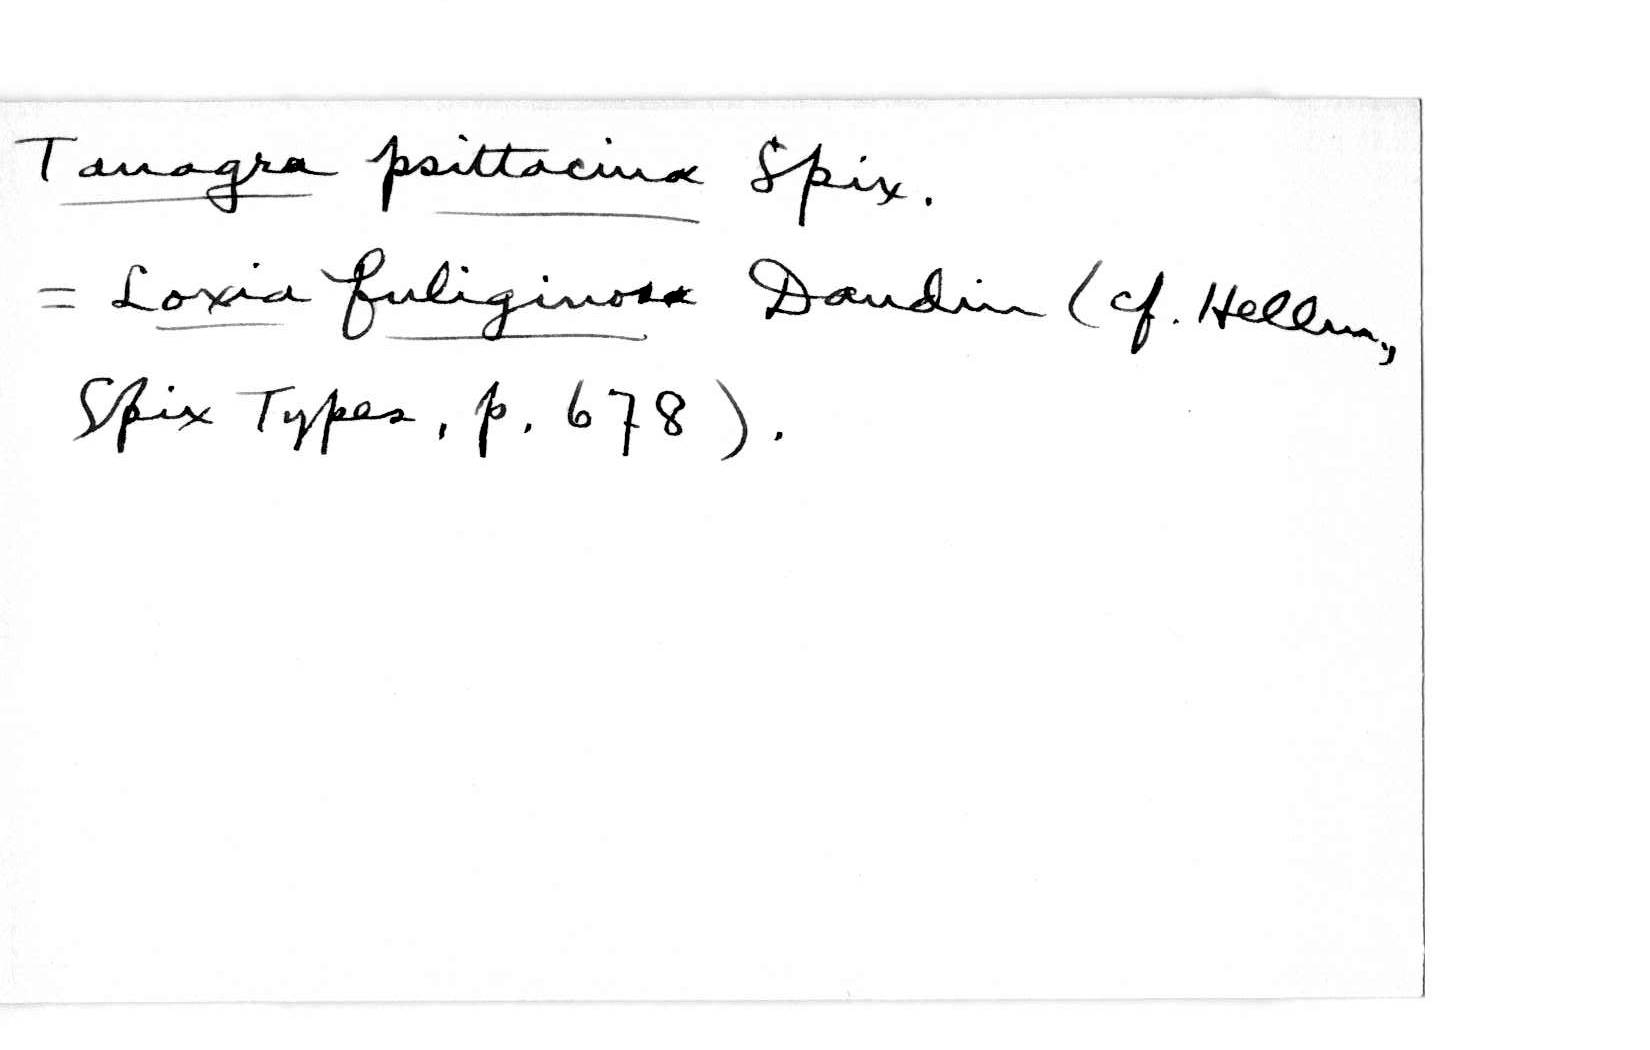 Tanagra psittacina Spix.
= Loxia fuliginosa Daudin (cf. Hellm.,
Spix Types, p. 678).